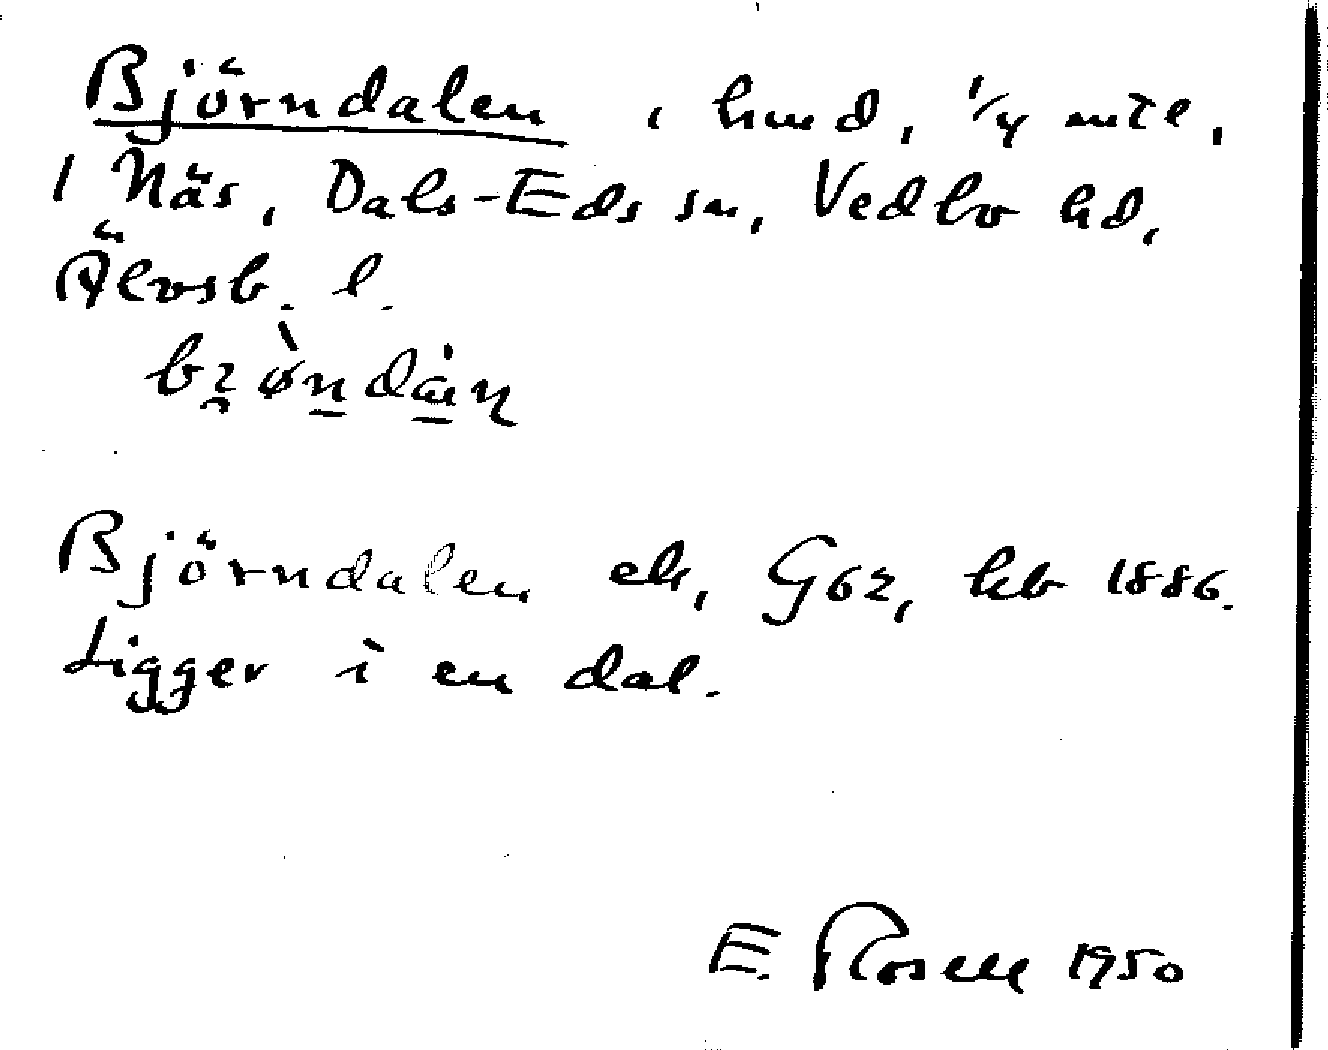 Björndalen, hmd, 1/4 mtl,
1 Näs, Dals-Eds sn, Vedbo hd,
Älvsb. l.
Björndalen ek, G62, kb 1886.
Ligger i en dal.
E. Rosell 1950